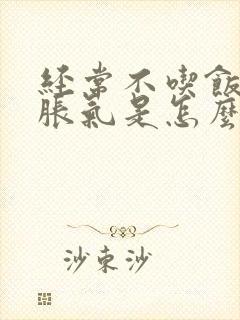 经常不喫飯
脹氣是怎麼
沙束沙